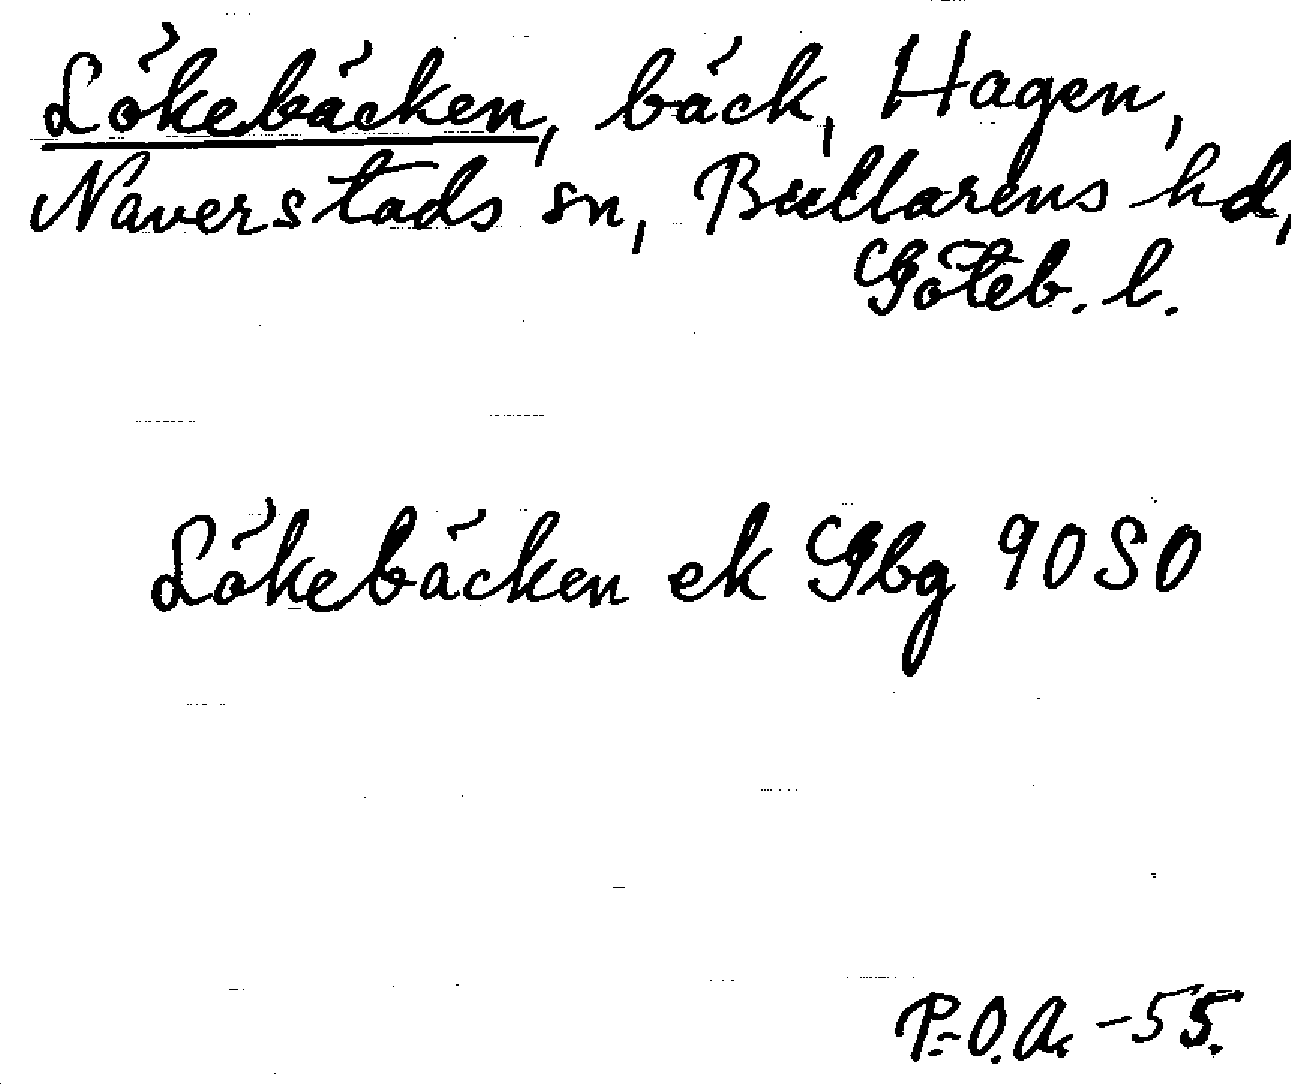 Lökebäcken, bäck, Hagen,
Naverstads sn, Bullarens hd,
Göteb. l.
Lökebäcken ek Gbg 90 SO
P.-O.A. -55.